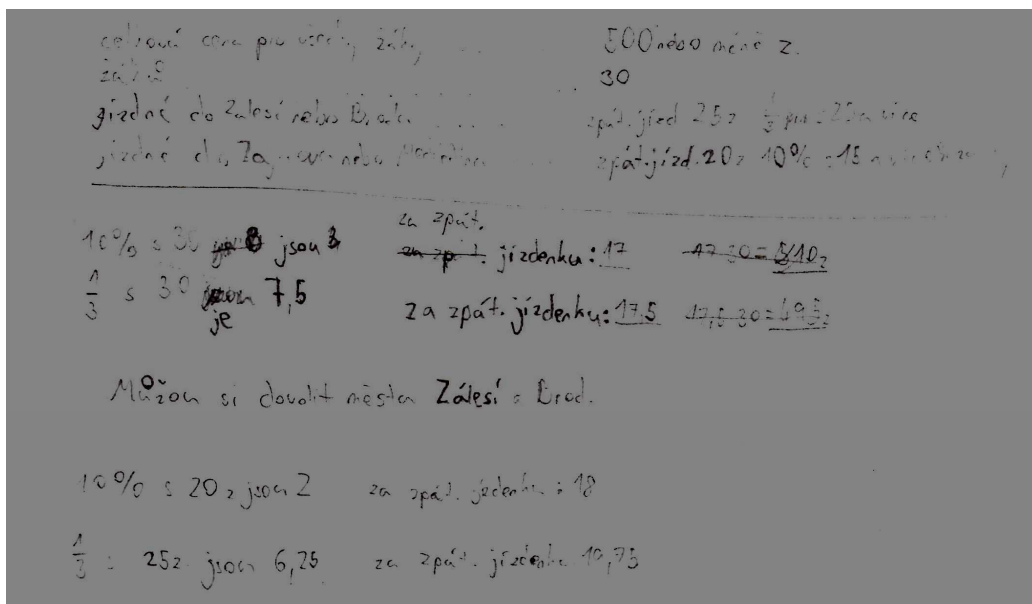 celková cena pro všechny žáky ... 500 nebo méně z.
žáků ... 30
jízdné do Zálesí nebo Brodu .... zpát. jízd 25z 1/3 pro 25 a více
jízdné do nebo .... zpát. jízd. 20z 10% 15
10% s 30 jsou 3 za zpát. jízdenku: 17 17 30 = 510z
1/3 s 30 je 7,5 za zpát. jízdenku: 17.5 17,5 30 = 495z
Můžou si dovolit města Zálesí a Brod.
10% s 20z jsou 2 za zpát. jízdenku : 18
1/3 s 25z jsou 6,25 za zpát. jízdenku 19,75